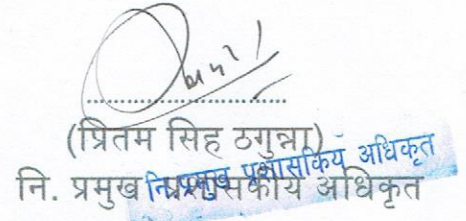 (प्रितम सिंह ठगुन्ना)
नि. प्रमुख प्रशासकीय अधिकृत
नि. प्रमुख प्रशासकिय अधिकृत